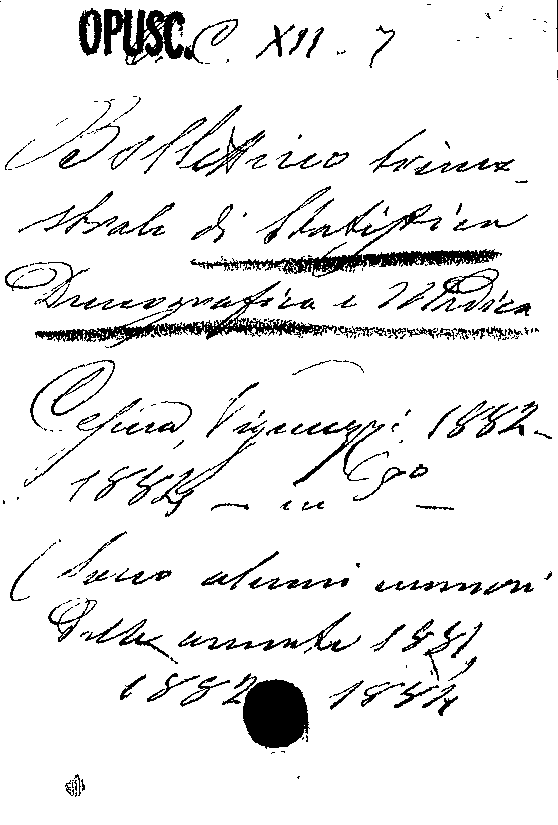 OPUSC. C. XII - 7
Bollettino trime-
strale di Statistica
Demografica e Medica
Cesena, Vignuzzi. 1882-
1884 — in 8o —
(Sono alcuni numeri
delle annate 1881,
1882 1884